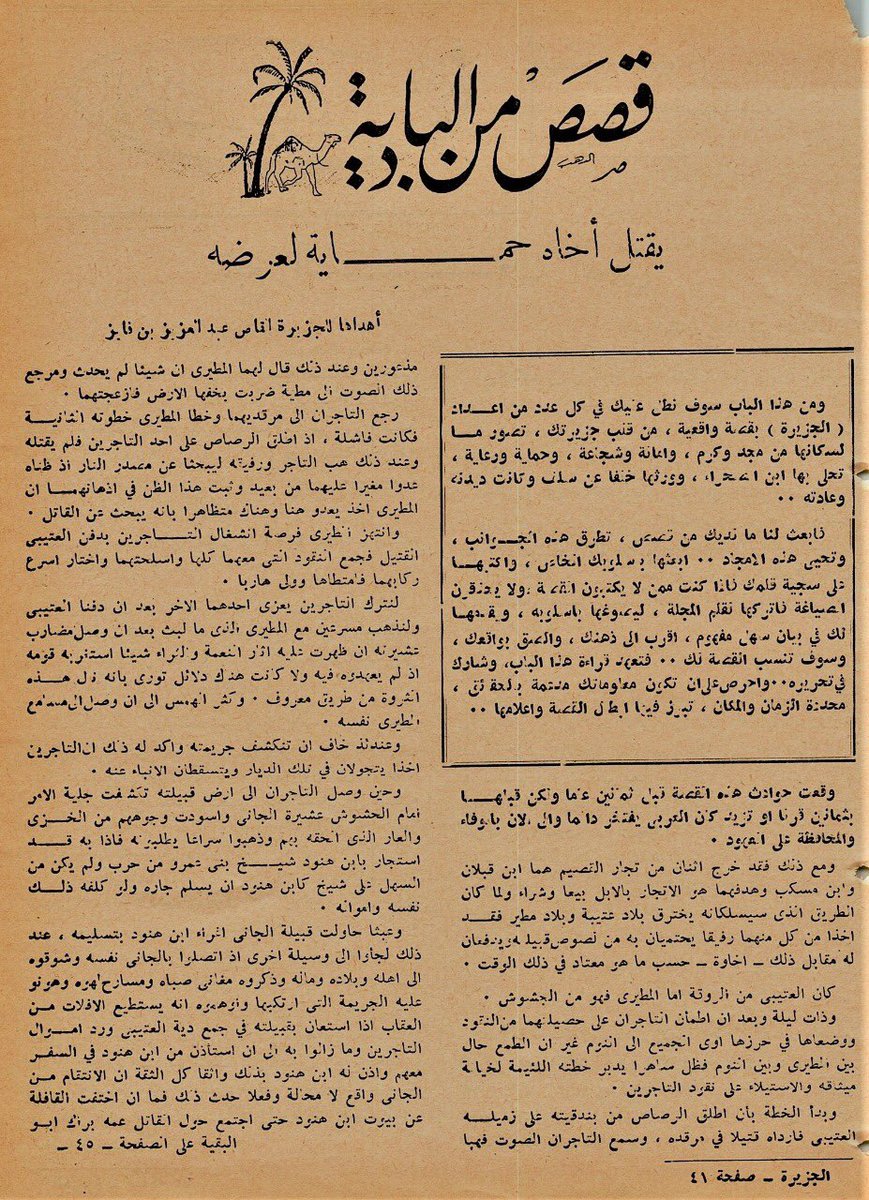 قصص من البادية
يقتل أخاه حماية لعرضه
أهداها للجزيرة القاص عبد العزيز بن فايز
ومن هذا الباب سوف نطل عليك في كل عدد من اعداد
( الجزيرة ) بقصة واقعية ، من قلب جزيرتك ، تصور ما
لسكانها من مجد وكرم ، وامانة وشجاعة ، وحماية ورعاية ،
تحلى بها ابن الصحراء ، وورثها خلفا عن سلف وكانت ديدنه
وعادته ٠٠
فابعث لنا ما لديك من قصص ، تطرق هذه الجوانب ،
وتحيى هذه الامجاد ٠٠ ابعثها بأسلوبك الخاص ، واكتبها
على سجية قلمك فاذا كنت ممن لا يكتبون القصة ولا يحذقون
الصياغة فاتركها لقلم المجلة ، ليصوغها باسلوبه ، ويقدمها
لك في بيان سهل مفهوم ، اقرب الى ذهنك ، والصق بواقعك ،
وسوف تنسب القصة لك ٠٠ فتعهد قراءة هذا الباب، وشارك
في تحريره٠٠واحرص على ان تكون معلوماتك مدعمة بالحقائق ،
محددة الزمان والمكان ، تبرز فيها ابطال القصة واعلامها ٠٠
وقعت حوادث هذه القصة قبل ثمانين عاما ولكن قبلها
بثمانين قرنا او تزيد كان العربي يفتخر دائما والى الان بالوفاء
والمحافظة على العهود ٠
ومع ذلك فقد خرج اثنان من تجار القصيم هما ابن قبلان
وابن مسكب وهدفهما هو الاتجار بالابل بيعا وشراء ولما كان
الطريق الذى سيسلكانه يخترق بلاد عتيبة وبلاد مطير فقد
اخذا من كل منهما رفيقا يحتميان به من لصوص قبيلته ويدفعان
له مقابل ذلك – اخاوة – حسب ما هو معتاد في ذلك الوقت ٠
كان العتيبي من الروقة اما المطيرى فهو من الجشوش ٠
وذات ليلة وبعد ان اطمأن التاجران على حصيلتهما من النقود
ووضعاها في حرزها اوى الجميع الى النوم غير ان الطمع حال
بين المطيرى وبين النوم فظل ساهرا يدبر خطته اللئيمة لخيانة
ميثاقه والاستيلاء على نقود التاجرين ٠
وبدأ الخطة بأن اطلق الرصاص من بندقيته على زميله
العتيبى فارداه قتيلا في مرقده ، وسمع التاجران الصوت فهبا
مذعورين وعند ذلك قال لهما المطيرى ان شيئا لم يحدث ومرجع
ذلك الصوت الى مطية ضربت بخفها الارض فازعجتهما ٠
رجع التاجران الى مرقديهما وخطا المطيرى خطوته الثانية
فكانت فاشلة ، اذ اطلق الرصاص على احد التاجرين فلم يقتله
وعند ذلك هب التاجر ورفيقه ليبحثا عن مصدر النار اذ ظناه
عدوا مغيرا عليهما من بعيد وثبت هذا الظن في اذهانهما ان
المطيرى اخذ يعدو هنا وهناك متظاهرا بانه يبحث عن القاتل ٠
وانتهز المطيرى فرصة انشغال التاجرين بدفن العتيبى
القتيل فجمع النقود التى معهما كلها واسلحتهما واختار اسرع
ركابهما فامتطاها وولى هاربا ٠
لنترك التاجرين يعزى احدهما الاخر بعد ان دفنا العتيبى
ولنذهب مسرعين مع المطيرى الذى ما لبث بعد ان وصل مضارب
عشيرته ان ظهرت عليه اثار النعمة والثراء شيئا استغربه قومه
اذ لم يعهدوه فيه ولا كانت هناك دلائل تورى بانه نال هذه
الثروة من طريق معروف ٠ وكثر الهمس الى ان وصل الى مسامع
المطيرى نفسه ٠
وعندئذ خاف ان تنكشف جريمته واكد له ذلك ان التاجرين
اخذا يتجولان في تلك الديار ويتسقطان الانباء عنه ٠
وحين وصل التاجران الى ارض قبيلته تكشفت جلية الامر
امام الحشوش عشيرة الجانى واسودت وجوههم من الخزى
والعار الذى الحقه بهم وذهبوا سراعا يطلبونه فاذا به قد
استجار بابن هنود شيخ بنى عمرو من حرب ولم يكن من
السهل على شيخ كابن هنود ان يسلم جاره ولو كلفه ذلك
نفسه وامواله ٠
وعبثا حاولت قبيلة الجانى اغراء ابن هنود بتسليمه ، عند
ذلك لجأوا الى وسيلة اخرى اذ اتصلوا بالجانى نفسه وشوقوه
الى اهله وبلاده وماله وذكروه مغانى صباه ومسارح لهوه وهونو
عليه الجريمة التى ارتكبها وأوهموه انه يستطيع الافلات من
العقاب اذا استعان بقبيلته في جمع دية العتيبى ورد اموال
التاجرين وما زالوا به الى ان استأذن من ابن هنود في السفر
معهم واذن له ابن هنود بذلك واثقا كل الثقة ان الانتقام من
الجانى واقع لا محالة وفعلا حدث ذلك فما ان اختفت القافلة
عن بيوت ابن هنود حتى اجتمع حول القاتل عمه براك ابو
البقية على الصفحة – ٤٥ –
الجزيرة – صفحة ٤١